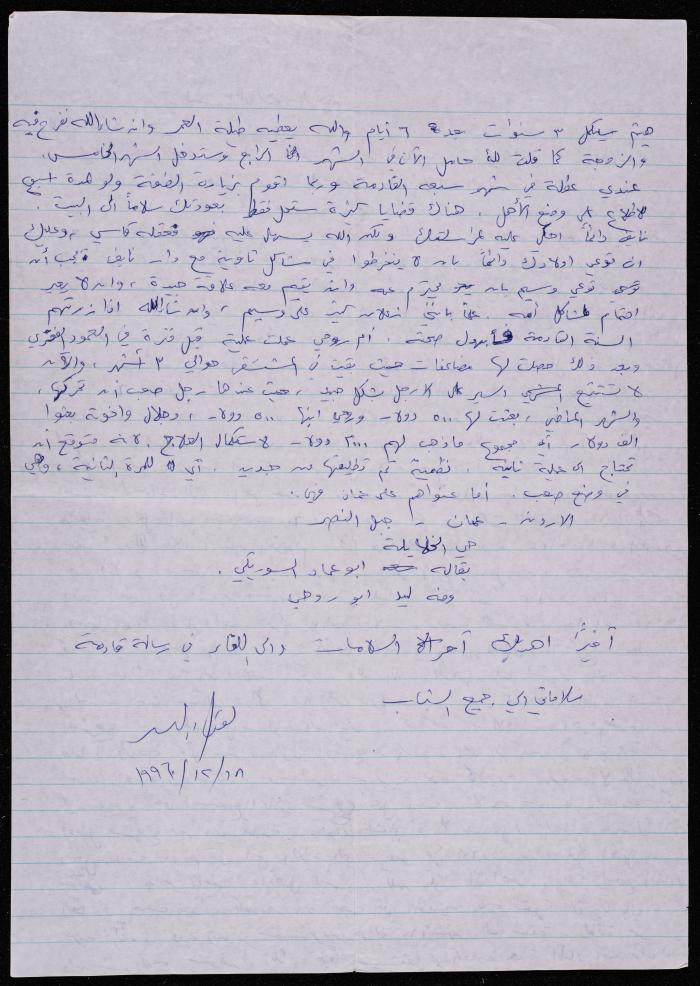 هيثم سيكمل ٣ سنوات بعد ٦ أيام والله يعطيه طيلة العمر وان شاء الله نفرح فيه
والزوجة كما قلت لك حامل الآن في الشهر الرابع وستدخل الشهر الخامس.
عندي عطلة في شهر سبعه القادمة وربما اقوم بزيارة الضفة ولو لمدة اسبوع
للاطلاع على وضع الأهل. هناك قضايا كثيرة ستحل فقط بعودتك سالماً الى البيت
نايف دائماً احكي عليه عن اسلوبك ولكن الله يسهل عليه فعقله قاسي، وعليك
ان توعي اولادك دائماً بان لا ينخرطوا في مشاكل ثانوية مع دار نايف فيجب أن
توعي وسيم بان يحترم عمه وان يقيم معه علاقة جيدة، وان لا يعير
اهتمام لمشاكل أمه. علماً بأنني زعلان كثير على وسيم، وان شاء الله اذا زرتهم
السنة القادمة صحته. أم روحي عملت عملية قبل فترة في العمود الفقري
وبعد ذلك حصلت لها مضاعفات حيث بقيت في المستشفى حوالي ٣ أشهر، والآن
لا تستطيع السير على الارجل بشكل جيد، حيث عندها رجل صعب أن تحركها،
والشهر الماضي، بعثت لها ٥٠٠ دولار وابنها ٥٠٠ دولار، وجلال واخوته بعثوا
الف دولار أي مجموع ما ذهب لهم ٢٠٠٠ دولار لاستكمال العلاج. لانه متوقع أن
تحتاج الى عملية ثانية. فطمية تم تطليقها من جديد. أي للمرة الثانية، وهي
في وضع صعب. أما عنوانهم في عمان فهي:
الاردن - عمان - جبل النصر
حي الخلايلة
بقالة ابو عماد السوريكي.
ومنه ليد ابو روحي
أخيراً اهديك أحر السلامات والى اللقاء في رسالة قادمة
سلاماتي الى جميع الشباب
١٩٩٦/١٢/١٨